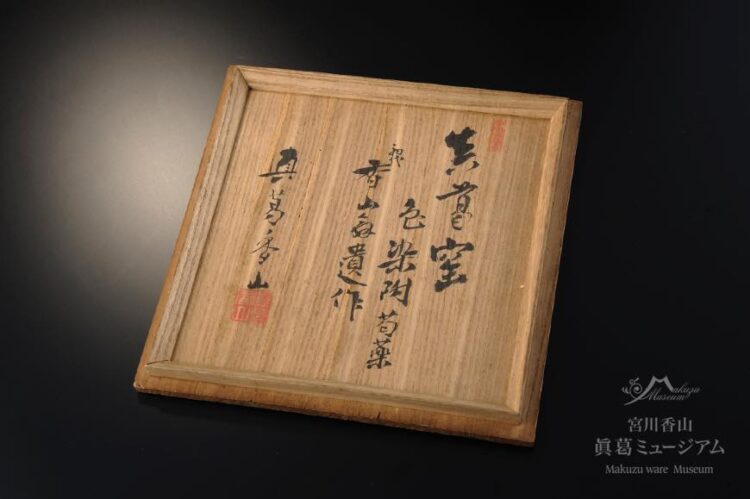 真葛窯
色染付芍薬
親
香山翁遺作
真葛香山
Makuzu
Museum
宮川香山
眞葛ミュージアム
Makuzu ware Museum